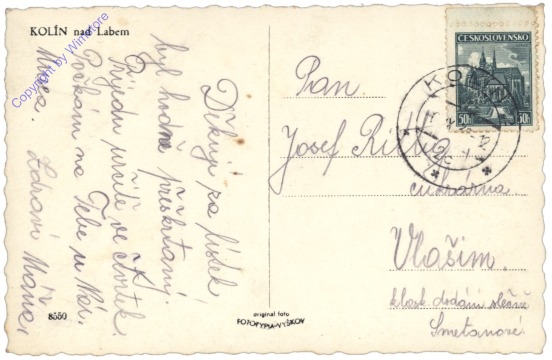 KOLÍN nad Labem
Copyright by Winestore
Děkuji za lístek
byl hodně přeškrtaný.
Přijedu určitě ve čtvrtek.
Počkám na Tebe u
Zdraví Máňa.
8550
original foto
FOTOTYPIA-VYŠKOV
ČESKOSLOVENSKO
50h 50h
KOLÍN
Pan
Josef
cukrárna
Vlašim.
k dodání slečně
Smetanové